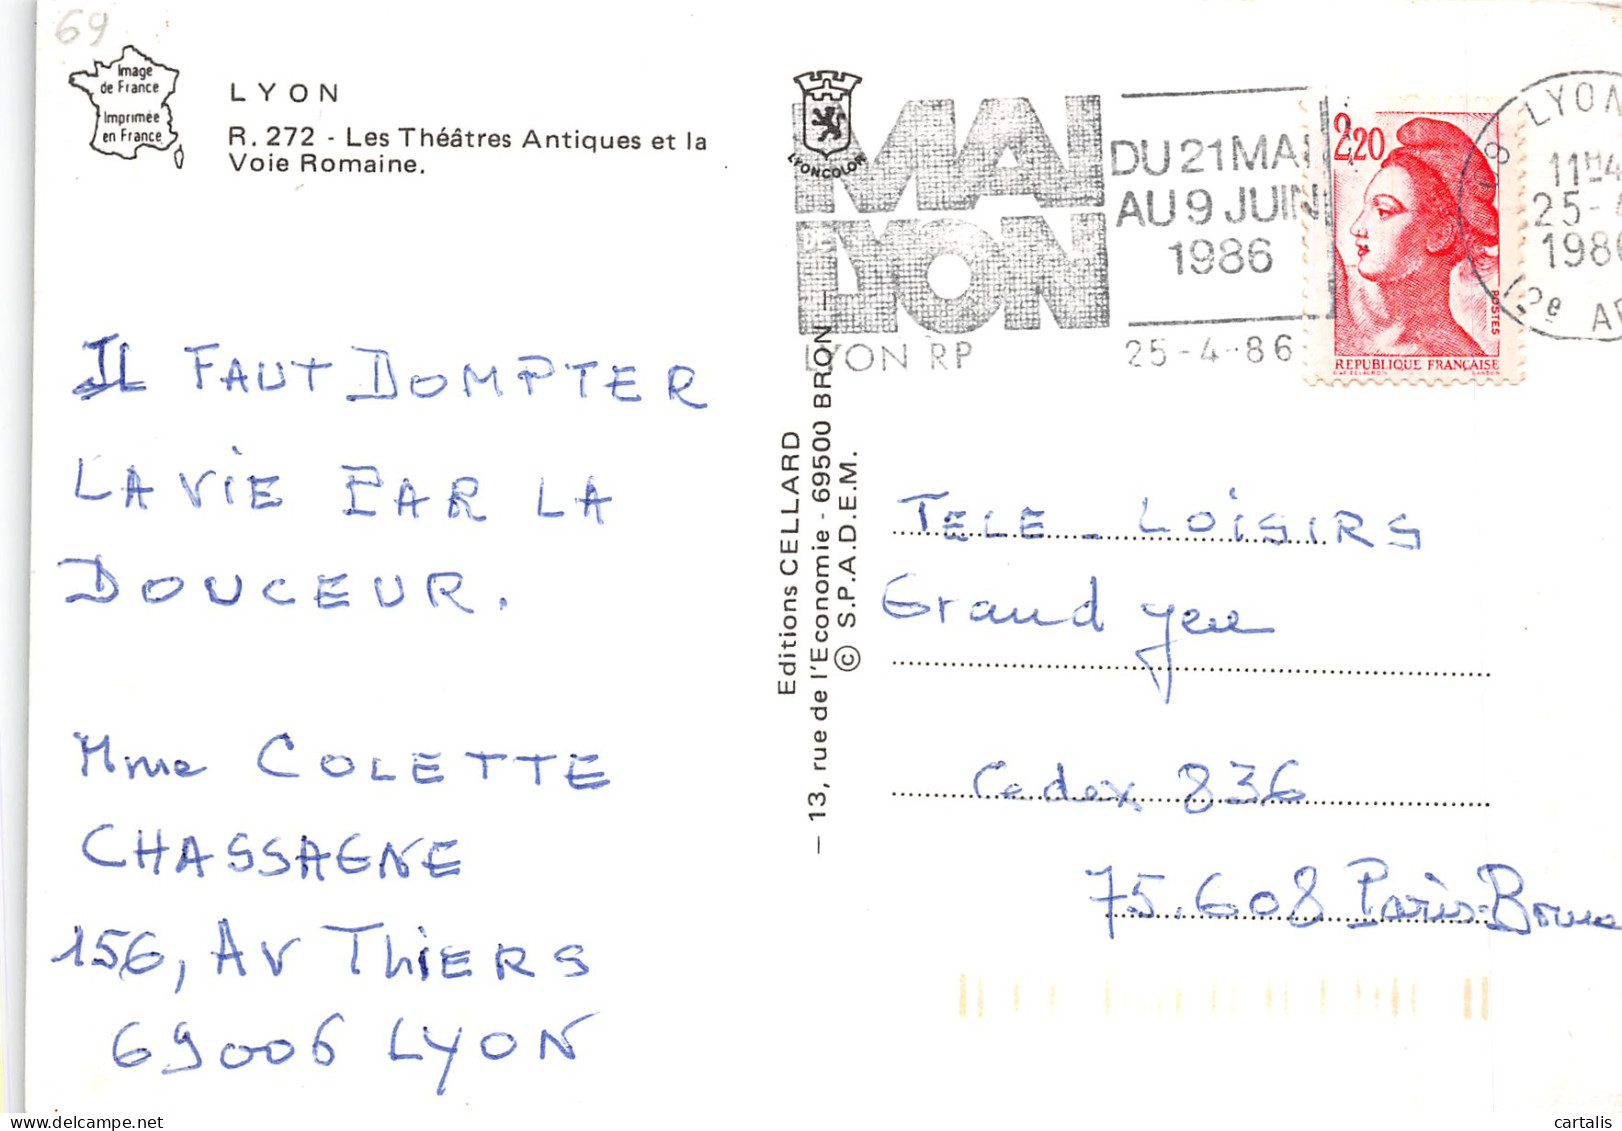 69
Image
de France
Imprimée
en France
LYON
R. 272 - Les Théâtres Antiques et la
Voie Romaine.
IL FAUT DOMPTER
LA VIE PAR LA
DOUCEUR.
Mme COLETTE
CHASSAGNE
156, AV THIERS
69006 LYON
Editions CELLARD
— 13, rue de l'Economie - 69500 BRON —
© S.P.A.D.E.M.
LYONCOLOR
MAI
DE
LYON
LYON RP
DU 21 MAI
AU 9 JUIN
1986
25-4-86
2,20
POSTES
REPUBLIQUE FRANÇAISE
LYON
11H4
25-4
1986
TELE-LOISIRS
Grand jeu
Cedex 836
75.608 Paris-Brune
cartalis | delcampe.net